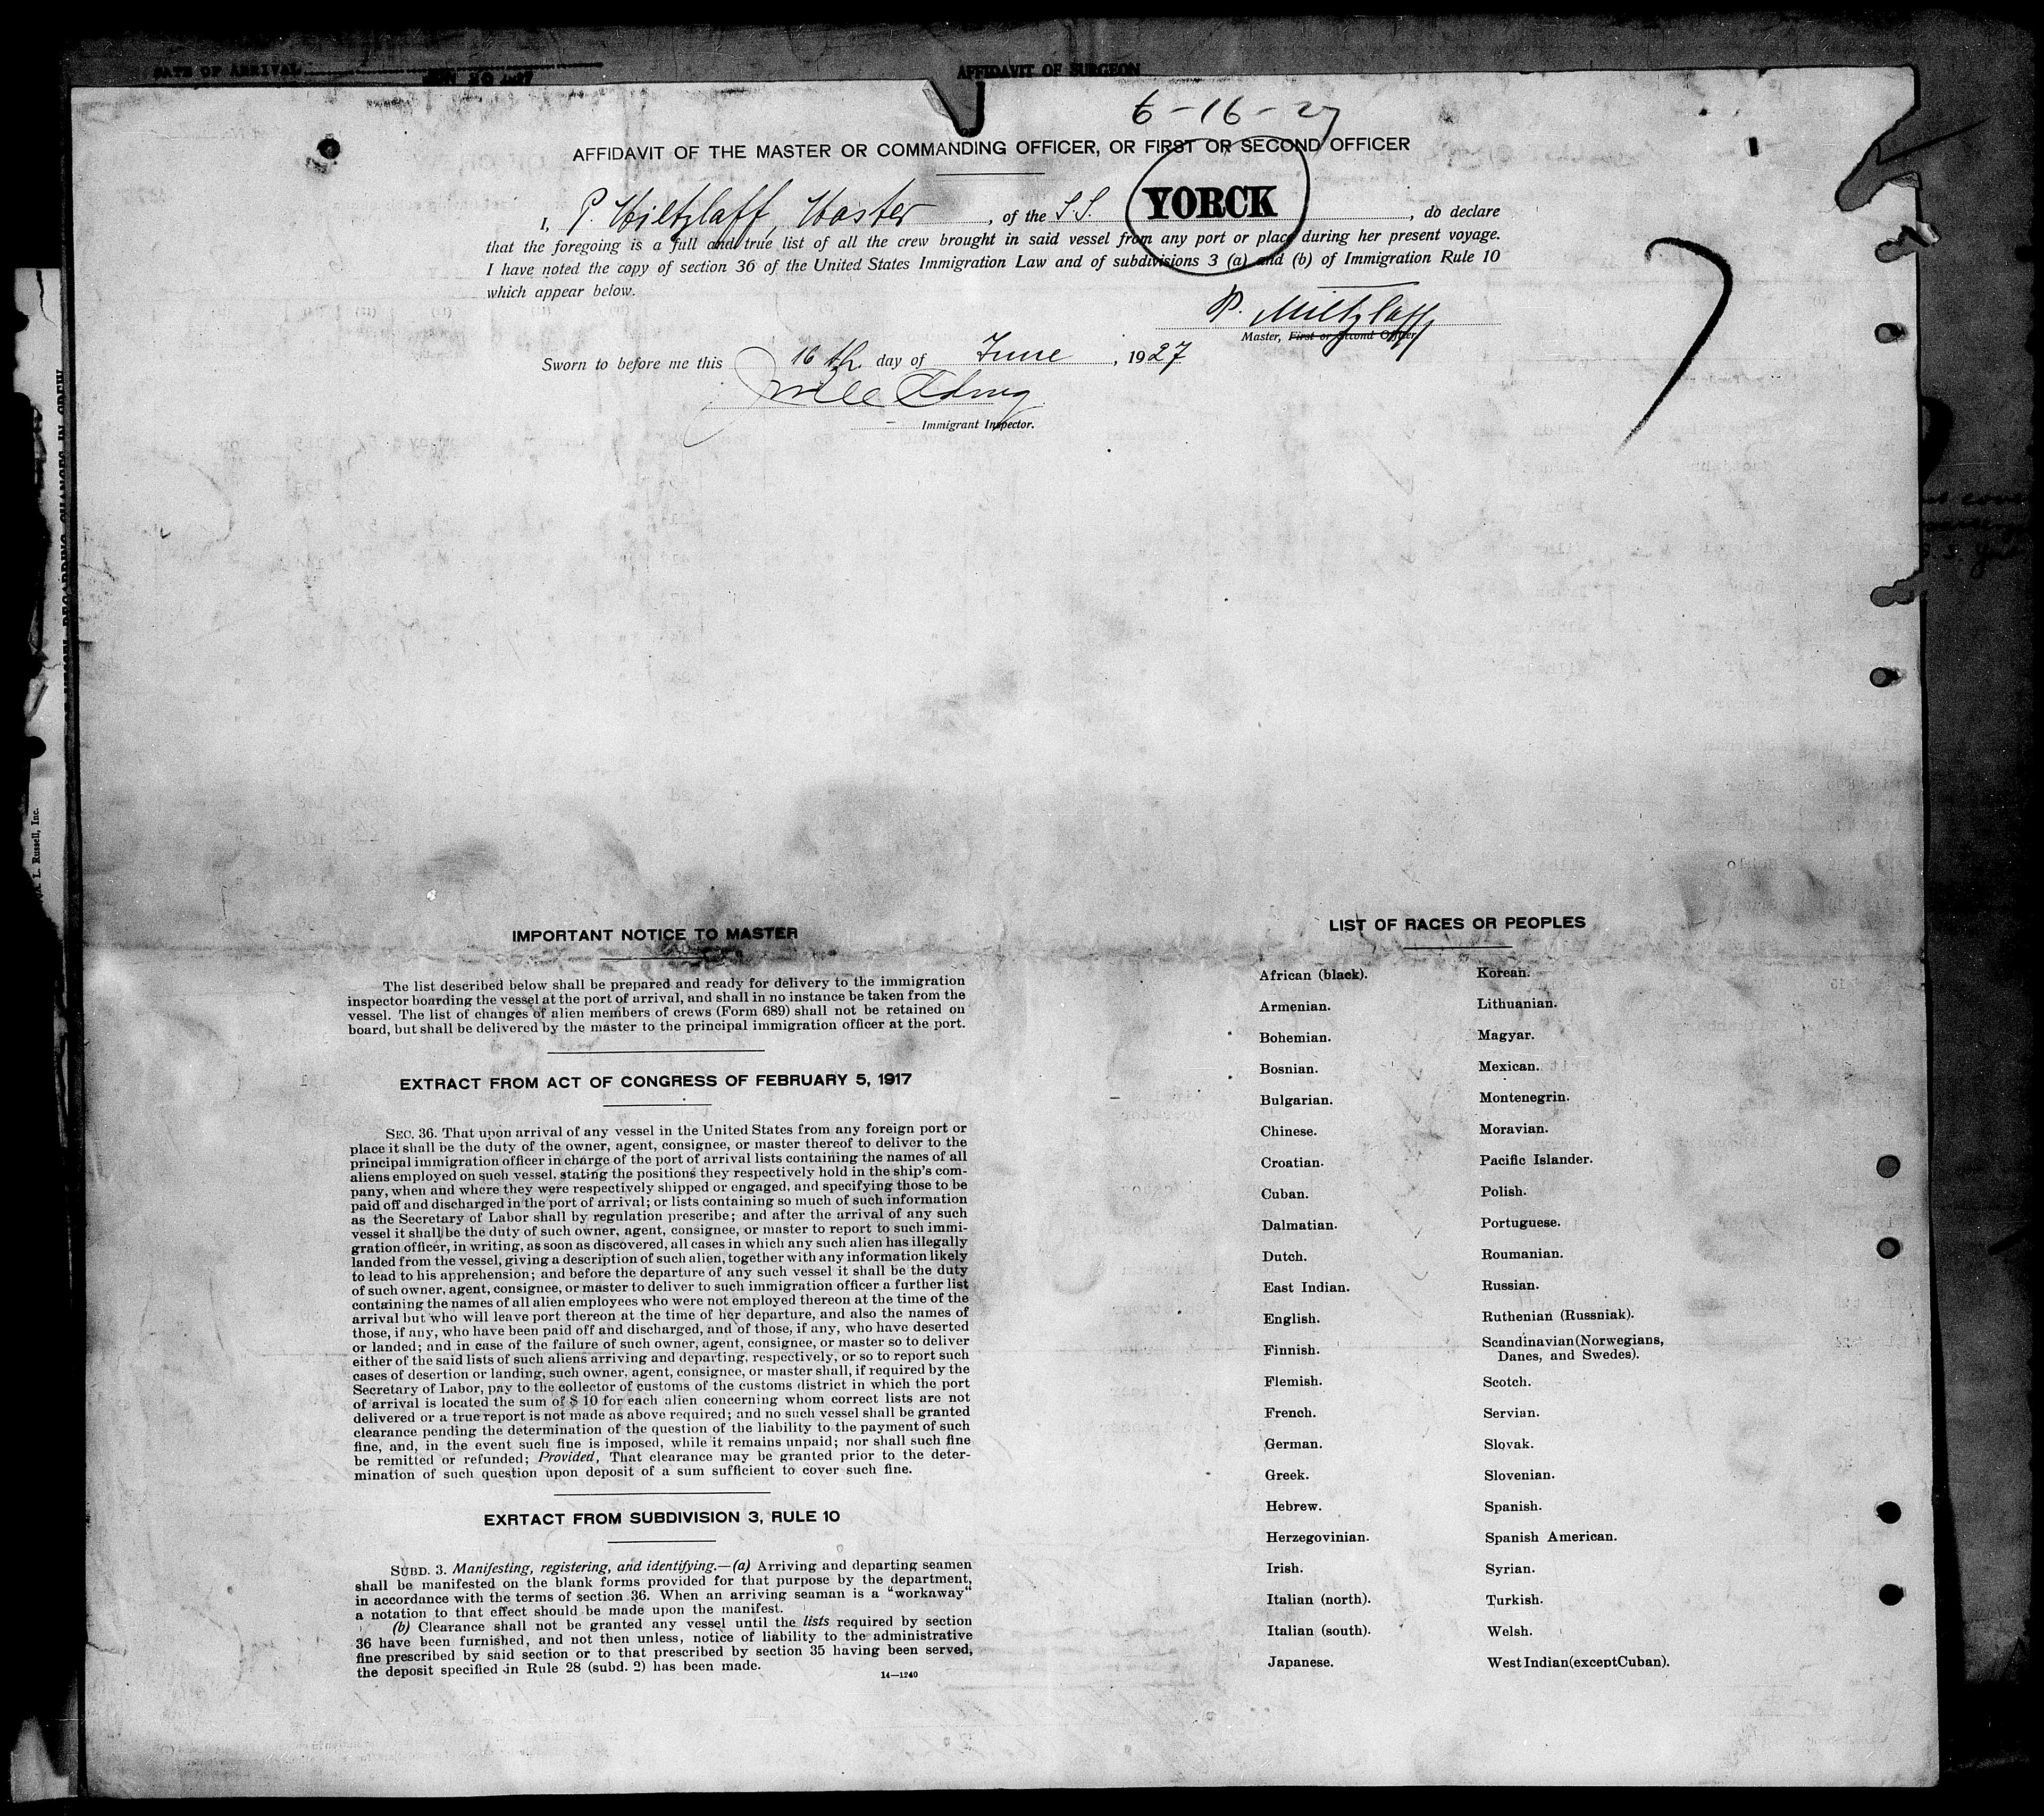 DATE OF ARRIVAL
AFFIDAVIT OF SURGEON
6-16-27
AFFIDAVIT OF THE MASTER OR COMMANDING OFFICER, OR FIRST OR SECOND OFFICER
I, P. Wiltzlaff, Master, of the S.S. YORCK, do declare
that the foregoing is a full and true list of all the crew brought in said vessel from any port or place during her present voyage.
I have noted the copy of section 36 of the United States Immigration Law and of subdivisions 3 (a) and (b) of Immigration Rule 10
which appear below.
Master, First or Second Officer
Sworn to before me this 16th day of June, 1927
Immigrant Inspector.
A. L. Russell, Inc.
IMPORTANT NOTICE TO MASTER
The list described below shall be prepared and ready for delivery to the immigration
inspector boarding the vessel at the port of arrival, and shall in no instance be taken from the
vessel. The list of changes of alien members of crews (Form 689) shall not be retained on
board, but shall be delivered by the master to the principal immigration officer at the port.
EXTRACT FROM ACT OF CONGRESS OF FEBRUARY 5, 1917
SEC. 36. That upon arrival of any vessel in the United States from any foreign port or
place it shall be the duty of the owner, agent, consignee, or master thereof to deliver to the
principal immigration officer in charge of the port of arrival lists containing the names of all
aliens employed on such vessel, stating the positions they respectively hold in the ship's com-
pany, when and where they were respectively shipped or engaged, and specifying those to be
paid off and discharged in the port of arrival; or lists containing so much of such information
as the Secretary of Labor shall by regulation prescribe; and after the arrival of any such
vessel it shall be the duty of such owner, agent, consignee, or master to report to such immi-
gration officer, in writing, as soon as discovered, all cases in which any such alien has illegally
landed from the vessel, giving a description of such alien, together with any information likely
to lead to his apprehension; and before the departure of any such vessel it shall be the duty
of such owner, agent, consignee, or master to deliver to such immigration officer a further list
containing the names of all alien employees who were not employed thereon at the time of the
arrival but who will leave port thereon at the time of her departure, and also the names of
those, if any, who have been paid off and discharged, and of those, if any, who have deserted
or landed; and in case of the failure of such owner, agent, consignee, or master so to deliver
either of the said lists of such aliens arriving and departing, respectively, or so to report such
cases of desertion or landing, such owner, agent, consignee, or master shall, if required by the
Secretary of Labor, pay to the collector of customs of the customs district in which the port
of arrival is located the sum of $ 10 for each alien concerning whom correct lists are not
delivered or a true report is not made as above required; and no such vessel shall be granted
clearance pending the determination of the question of the liability to the payment of such
fine, and, in the event such fine is imposed, while it remains unpaid; nor shall such fine
be remitted or refunded; Provided, That clearance may be granted prior to the deter-
mination of such question upon deposit of a sum sufficient to cover such fine.
EXRTACT FROM SUBDIVISION 3, RULE 10
SUBD. 3. Manifesting, registering, and identifying.—(a) Arriving and departing seamen
shall be manifested on the blank forms provided for that purpose by the department,
in accordance with the terms of section 36. When an arriving seaman is a "workaway"
a notation to that effect should be made upon the manifest.
(b) Clearance shall not be granted any vessel until the lists required by section
36 have been furnished, and not then unless, notice of liability to the administrative
fine prescribed by said section or to that prescribed by section 35 having been served,
the deposit specified in Rule 28 (subd. 2) has been made.
14—1240
LIST OF RACES OR PEOPLES
African (black).
Armenian.
Bohemian.
Bosnian.
Bulgarian.
Chinese.
Croatian.
Cuban.
Dalmatian.
Dutch.
East Indian.
English.
Finnish.
Flemish.
French.
German.
Greek.
Hebrew.
Herzegovinian.
Irish.
Italian (north).
Italian (south).
Japanese.
Korean.
Lithuanian.
Magyar.
Mexican.
Montenegrin.
Moravian.
Pacific Islander.
Polish.
Portuguese.
Roumanian.
Russian.
Ruthenian (Russniak).
Scandinavian (Norwegians,
Danes, and Swedes).
Scotch.
Servian.
Slovak.
Slovenian.
Spanish.
Spanish American.
Syrian.
Turkish.
Welsh.
West Indian (except Cuban).